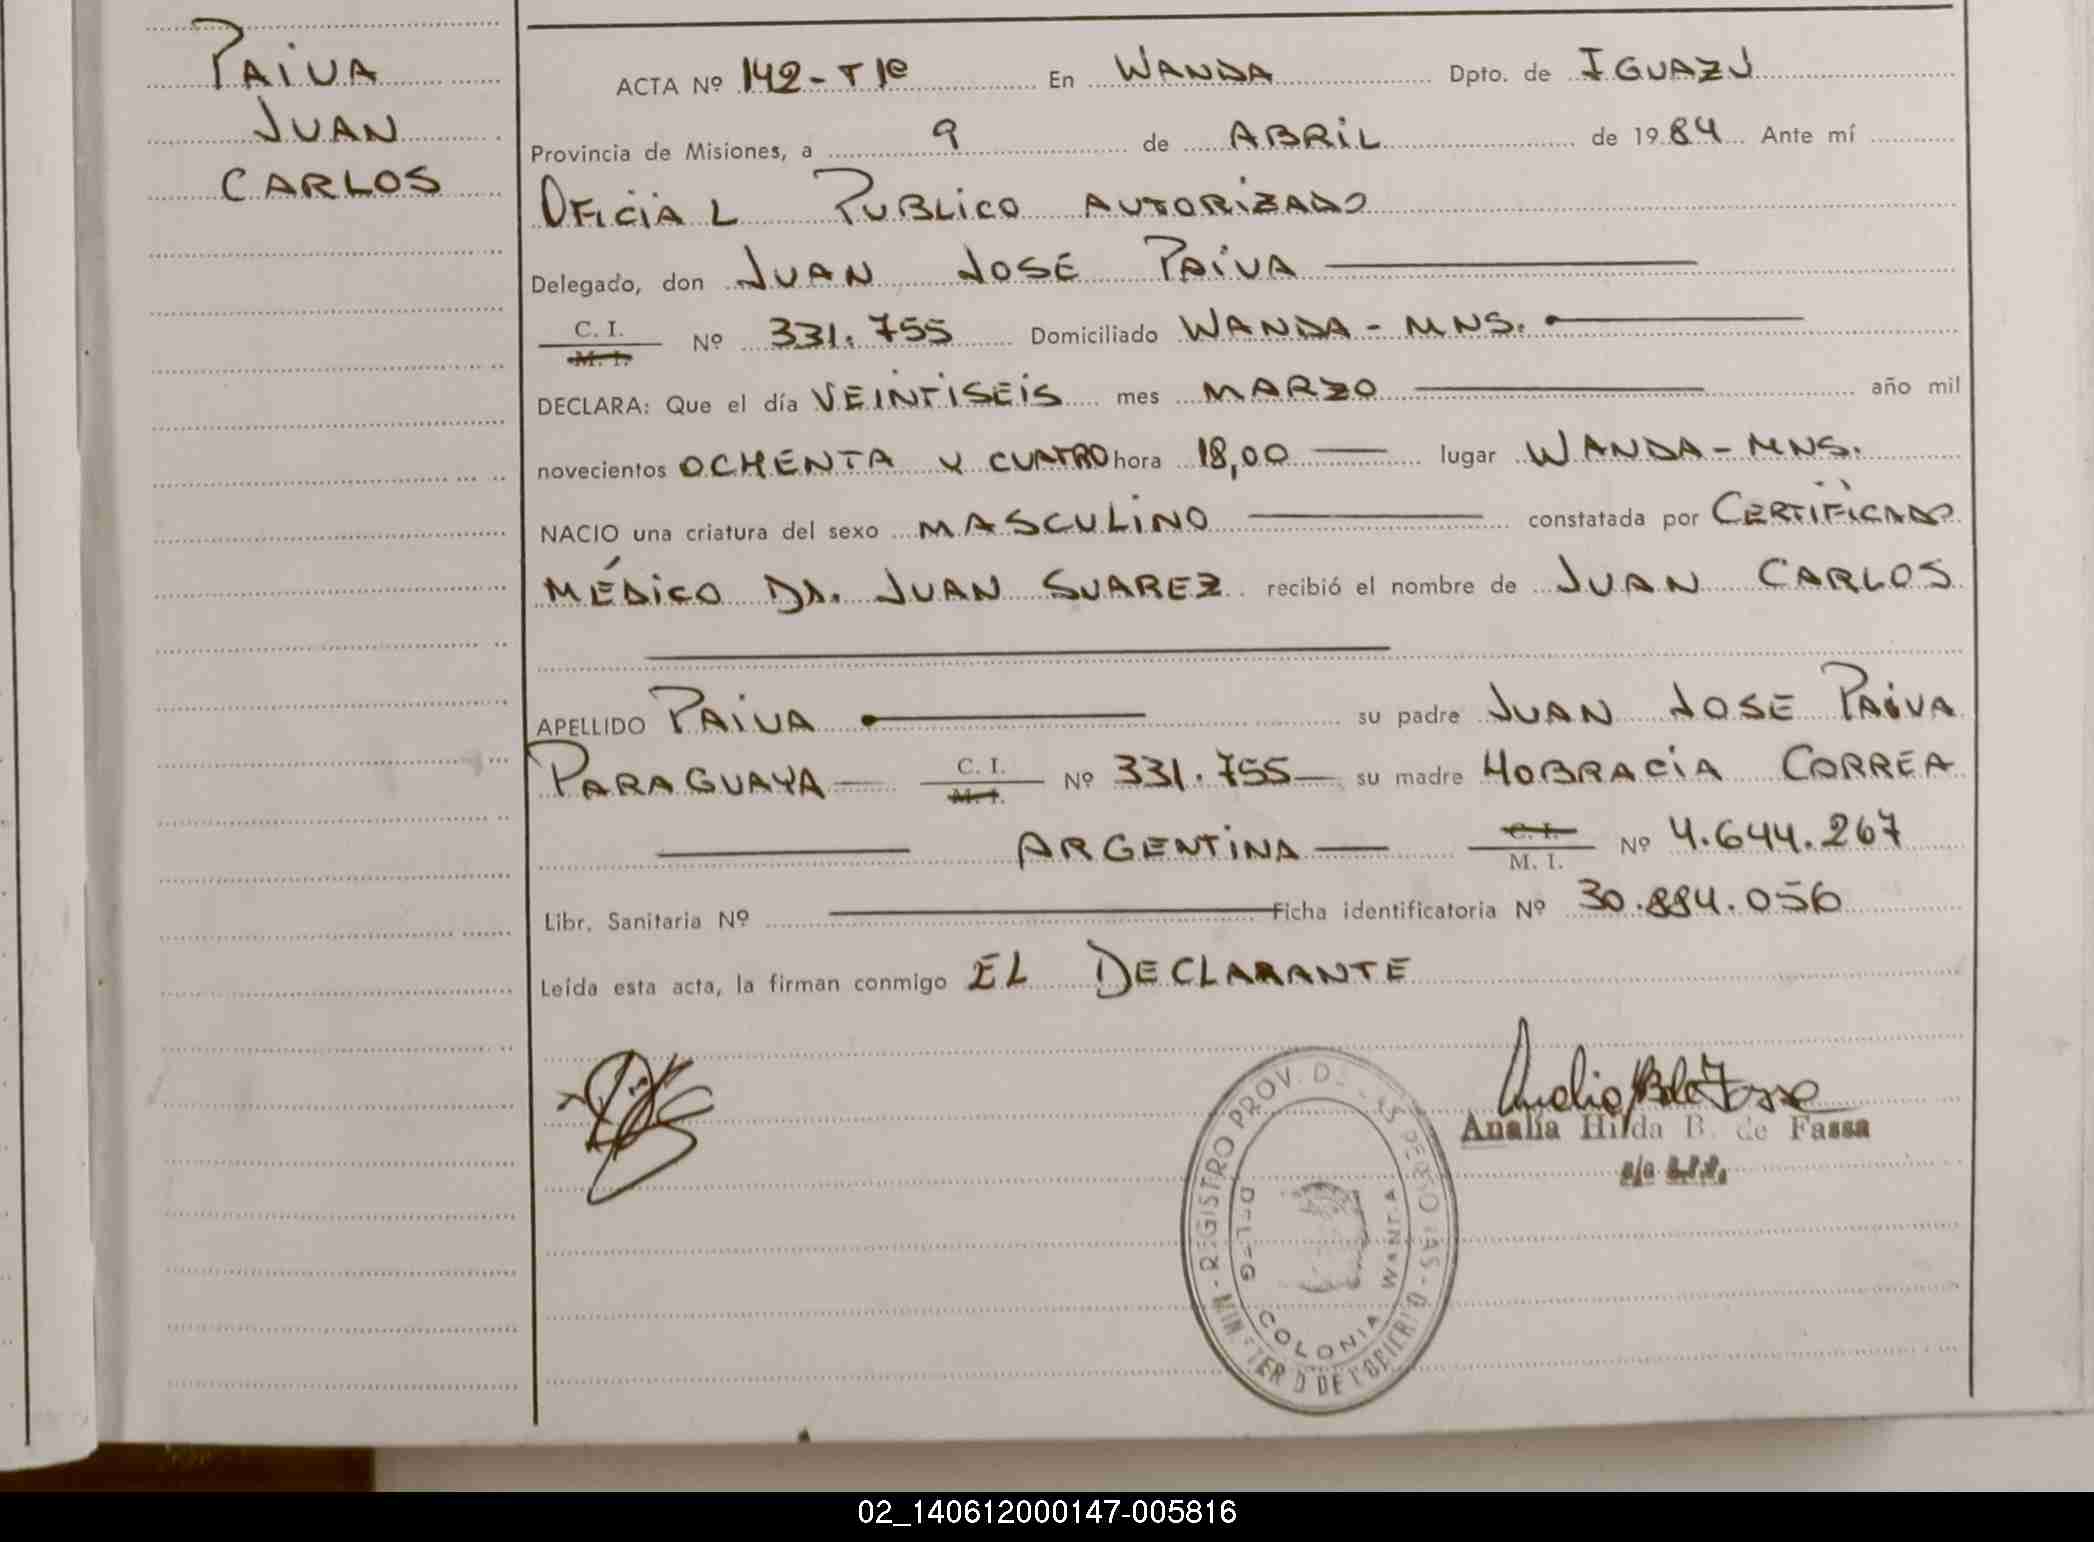 PAIVA
JUAN
CARLOS
ACTA Nº 142 - T 1º En WANDA Dpto. de IGUAZU
Provincia de Misiones, a 9 de ABRIL de 1984 Ante mí
OFICIAL PUBLICO AUTORIZADO
Delegado, don JUAN JOSE PAIVA
C. I. M. I. Nº 331.755 Domiciliado WANDA - MNS.
DECLARA: Que el día VEINTISEIS mes MARZO año mil
novecientos OCHENTA Y CUATRO hora 18,00 lugar WANDA - MNS.
NACIO una criatura del sexo MASCULINO constatada por CERTIFICADO
MÉDICO DR. JUAN SUAREZ recibió el nombre de JUAN CARLOS
APELLIDO PAIVA su padre JUAN JOSE PAIVA
PARAGUAYA C. I. M. I. Nº 331.755 su madre HOBRACIA CORREA
ARGENTINA C. I. M. I. Nº 4.644.267
Libr. Sanitaria Nº Ficha identificatoria Nº 30.884.056
Leída esta acta, la firman conmigo EL DECLARANTE
Analia Hilda B. de Fassa
REGISTRO PROV. DE LAS PERSONAS
DELEG COLONIA WANDA
02_140612000147-005816